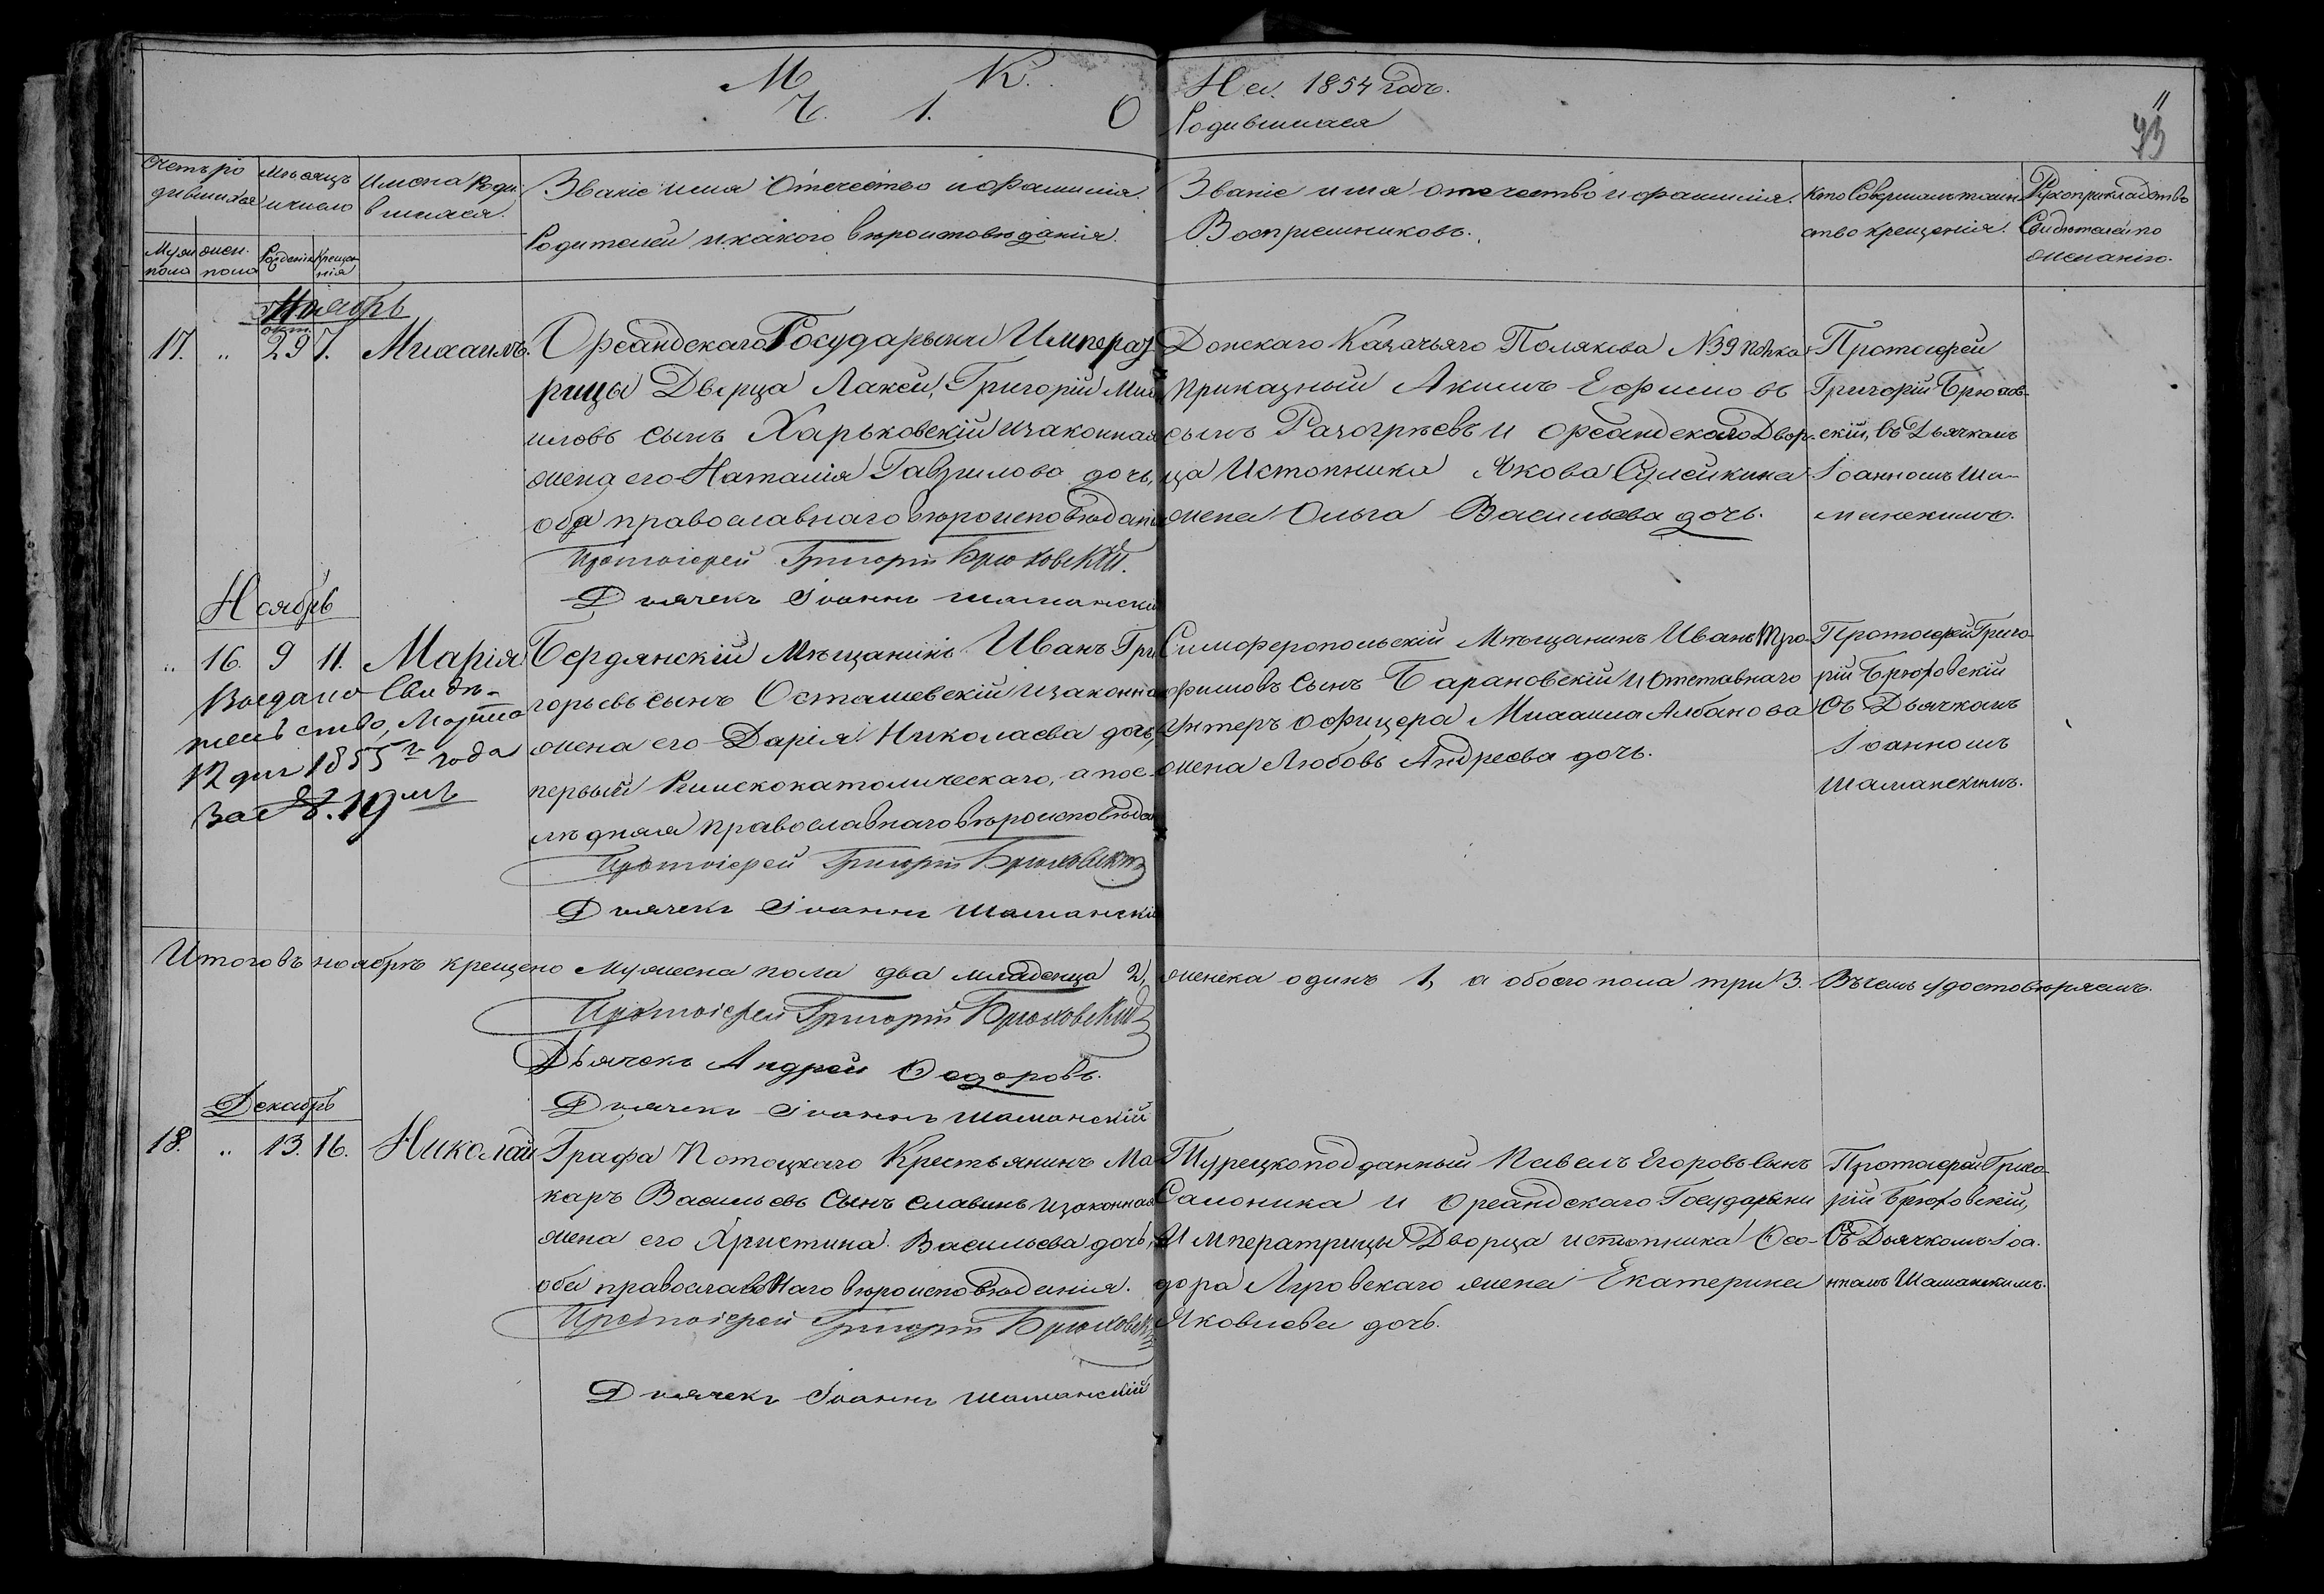 М К. На 1854 годъ.
Ч. 1. О Родившихся
11
93
Счетъ ро
дившихся
Мѣсяцъ
и число
Имена Роди
вшихся.
Званіе имя Отчество и фамилія.
Родителей и какого вѣроисповѣданія.
Званіе имя отечество и фамилія.
Воспріемниковъ.
Кто Совершалъ таин-
ство крещенія.
Рукоприкладство
Свидѣтелей по
желанію.
Муж
пола
жен.
пола
Рожденія
Креще-
нія
Ноябрь
окт.
17. „ 29 7. Михаилъ.
Ореандскаго Государыни Императ
рицы Дворца Лакей, Григорій Миха
иловъ сынъ Харьковскій и законная
жена его Наталія Гаврилова дочь,
оба православнаго вѣроисповѣдані
Протоіерей Григорій Брюховскій.
Дьячекъ Іоаннъ Шаманскій
Донскаго Казачьяго Полякова №39 полка
приказный Акимъ Ефимовъ
сынъ Рачогрѣевъ и Ореандскаго Двор-
ца Истопника Якова Сулейкина
жена Ольга Васильева дочь.
Протоіерей
Григорій Брюхов-
скій, съ Дьячкомъ
Іоанномъ Ша-
манскимъ.
Ноябрь
„ 16. 9 11. Марія
Выдано Свидѣ-
тельство, Марта
12 дня 1855го года
За № 19мъ
Бердянскій Мѣщанинъ Иванъ Гри
горьевъ сынъ Осташевскій и законна
жена его Дарія Николаева дочь,
первый Римскокатолическаго, а пос-
лѣдняя православнаго вѣроисповѣда
Протоіерей Григорій Брюховскій
Дьячекъ Іоаннъ Шаманскій
Симферопольскій Мѣщанинъ Иванъ Тро-
фимовъ сынъ Барановскій и Отставнаго
Унтеръ Офицера Михаила Албанова
жена Любовь Андреева дочь.
Протоіерей Григо-
рій Брюховскій
Съ Дьячкомъ
Іоанномъ
Шаманскимъ.
Итого въ ноябрѣ крещено Мужеска пола два младенца 2, женска одинъ 1, а обоего пола три 3. Въ чемъ удостовѣряемъ.
Протоіерей Григорій Брюховскій
Дьячекъ Андрей Ѳедоровъ.
Дьячекъ Іоаннъ Шаманскій
Декабрь
18. „ 13. 16. Николай
Графа Потоцкаго Крестьянинъ Ма
каръ Васильевъ Сынъ Славинъ и законная
жена его Христина Васильева дочь,
оба православнаго вѣроисповѣданія.
Протоіерей Григорій Брюховскій
Дьячекъ Іоаннъ Шаманскій
Турецкоподданный Павелъ Егоровъ Сынъ
Салоника и Ореандскаго Государыни
Императрицы Дворца истопника Ѳео-
дора Луговскаго жена Екатерина
Яковлева дочь.
Протоіерей Григо-
рій Брюховскій,
Съ Дьячкомъ Іоа-
нномъ Шаманскимъ.